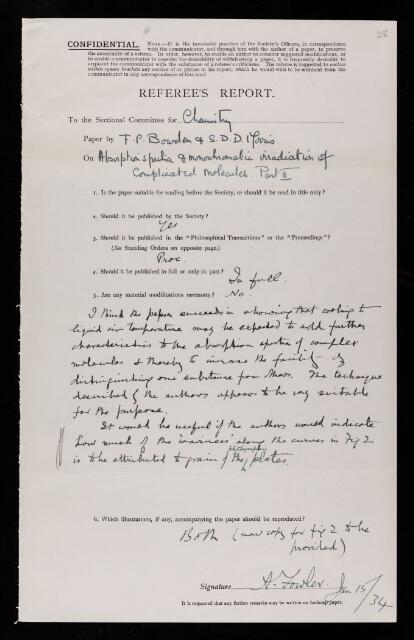 258
CONFIDENTIAL. NOTE.—It is the invariable practice of the Society's Officers, in correspondence
with the communicator, and through him with the author of a paper, to preserve
the anonymity of a referee. In order, however, to enable an author to consider suggested modifications, or
to enable a communicator to consider the desirability of withdrawing a paper, it is frequently desirable to
acquaint the communicator with the substance of a referee's criticisms. The referee is requested to enclose
within square brackets any section of or phrase in his report, which he would wish to be withheld from the
communicator in any correspondence of this kind.
REFEREE'S REPORT.
To the Sectional Committee for Chemistry
Paper by F. P. Bowden & S. D. D. Morris
On Absorption spectra & monochromatic irradiation of
Complicated Molecules. Part II
1. Is the paper suitable for reading before the Society, or should it be read in title only?
2. Should it be published by the Society?
Yes
3. Should it be published in the "Philosophical Transactions" or the "Proceedings"?
(See Standing Orders on opposite page.)
Proc.
4. Should it be published in full or only in part? In full.
5. Are any material modifications necessary? No.
I think the paper succeeds in showing that cooling to
liquid air temperature may be expected to add further
characteristics to the absorption spectra of complex
molecules & thereby to increase the facility of
distinguishing one substance from others. The technique
described by the authors appears to be very suitable
for the purpose.
It would be useful if the authors would indicate
how much of the "waviness" along the curves in Fig 2
is to be attributed to grain of the photographic plates.
6. Which illustrations, if any, accompanying the paper should be reproduced?
Both (new copy for fig 2 to be
provided)
Signature A. Fowler. Jan 15/34
It is requested that any further remarks may be written on foolscap paper.